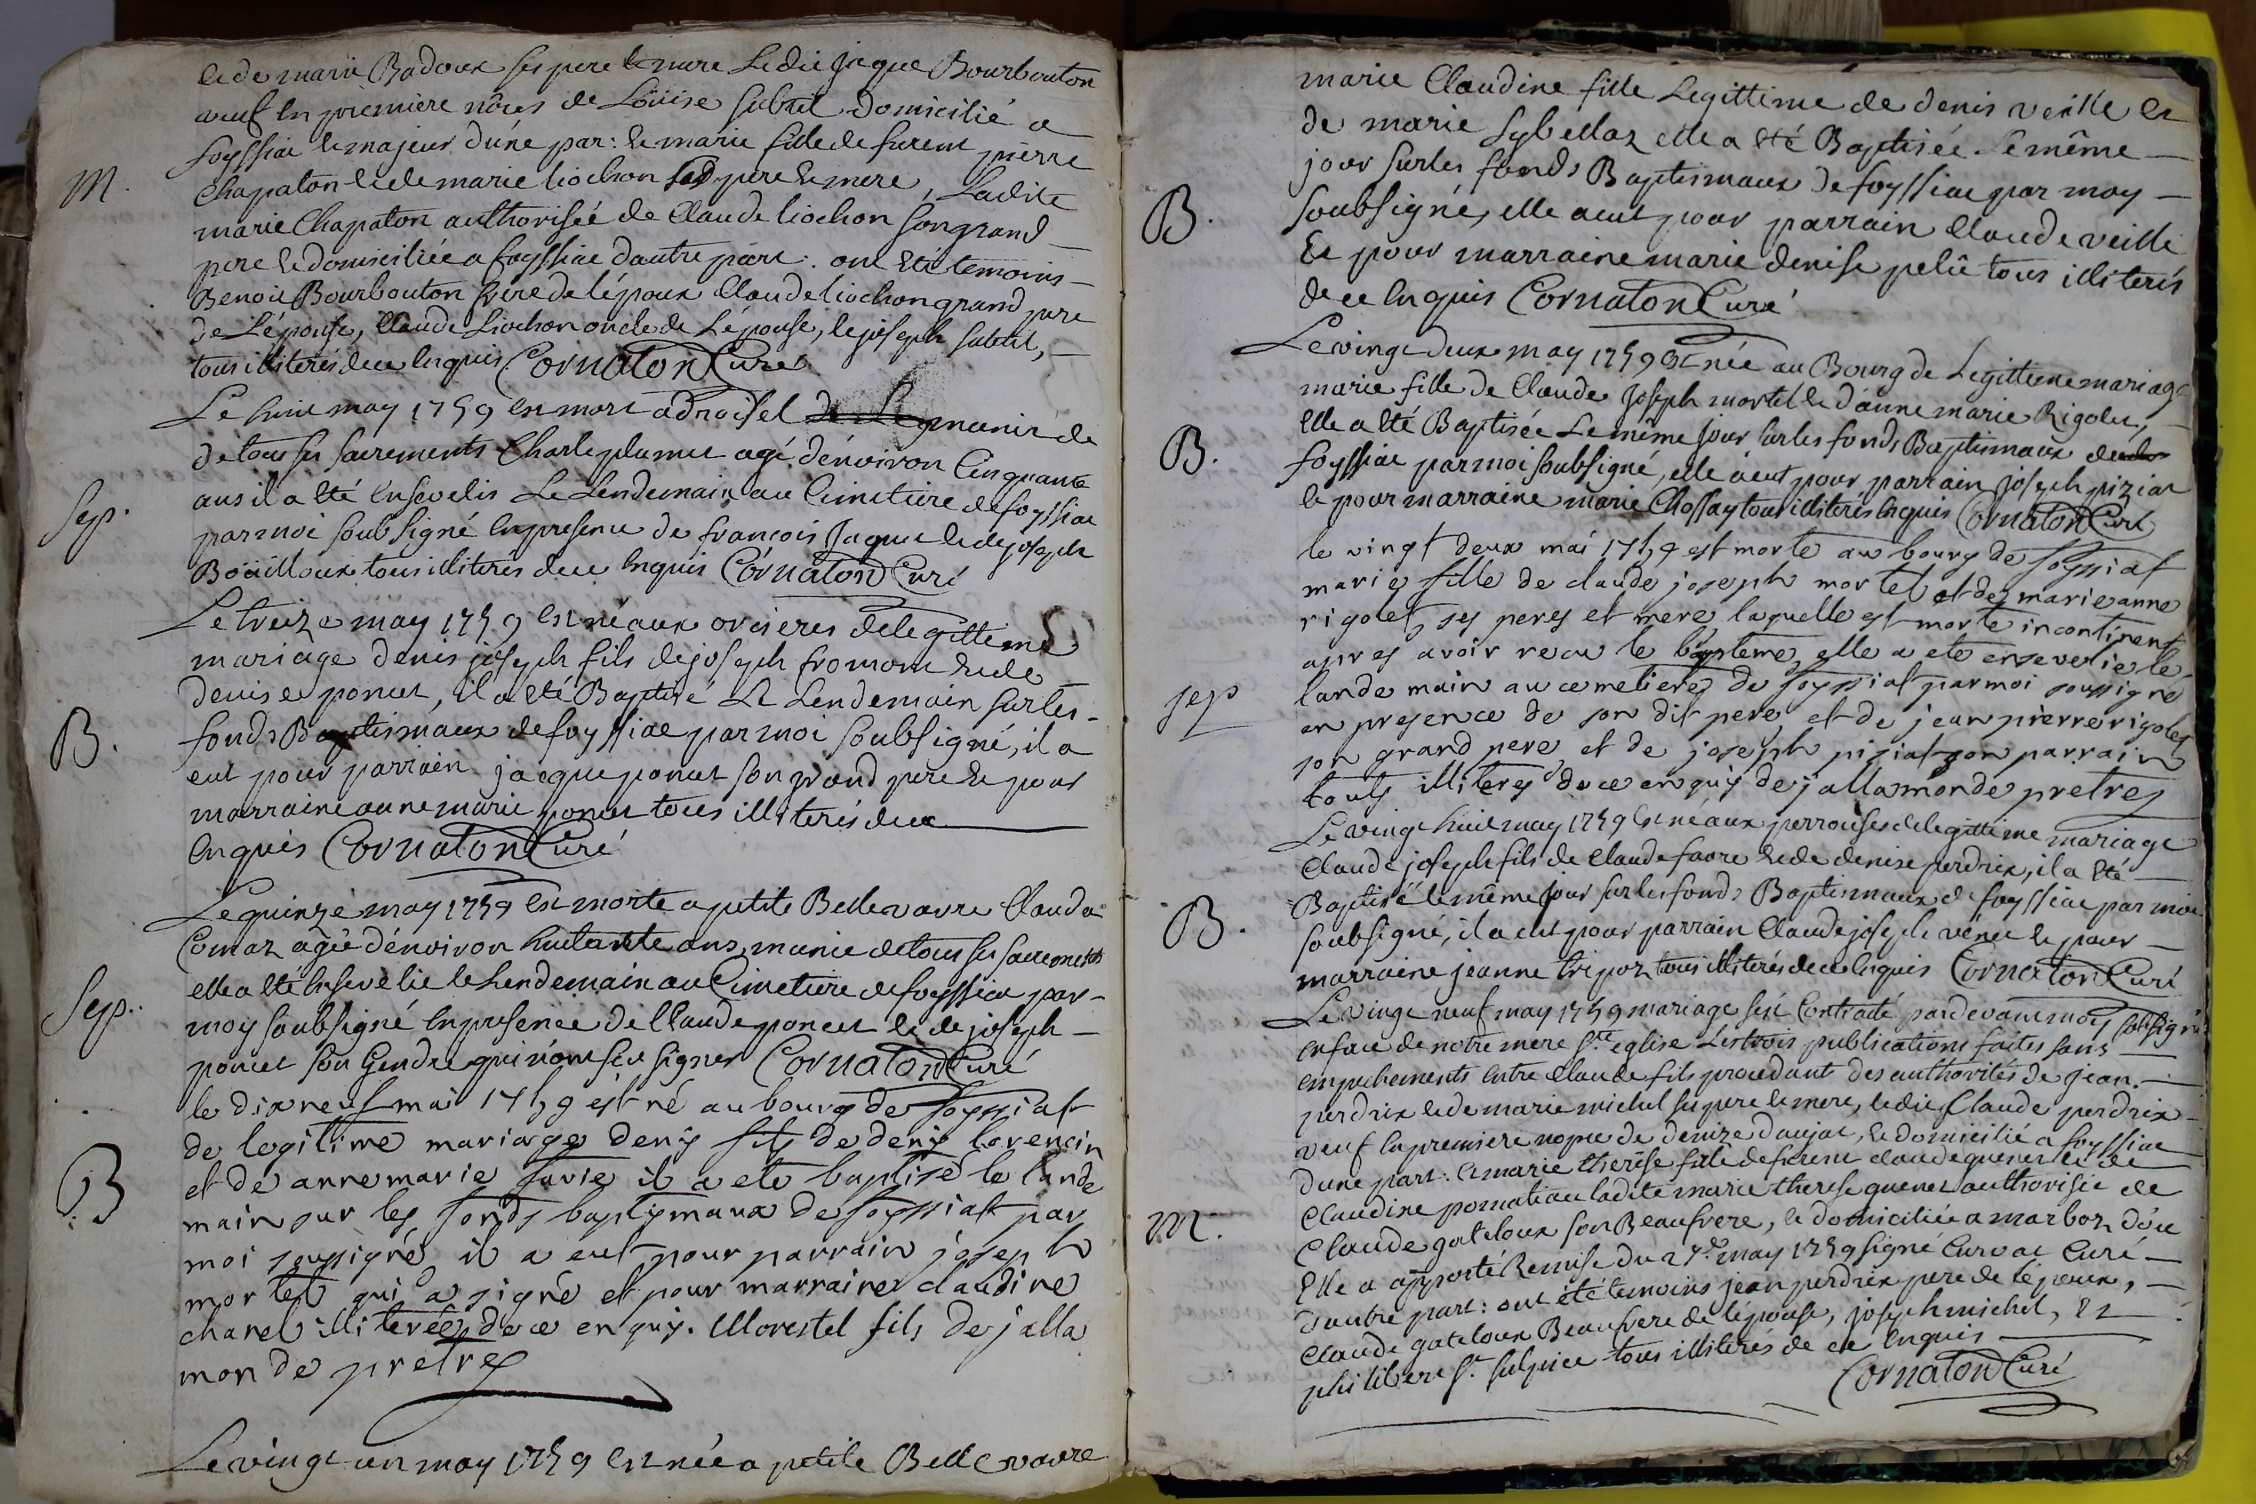 et de marie Badoux ses pere et mere Ledit Jaque Bourbouton
veuf en premiere nôces de Loüise Subtil domicilié a
foyssiac et majeur d'une par: et marie fille de furent pierre
M.
Chapaton et de marie liochon ses pere et mere, Ladite
marie Chapaton authorisée de Claude liochon son grand
pere et domiciliée a foyssiac d'autre part. ont été temoins
Benoit Bourbouton frere de l'époux Claude liochon grand pere
de L'épouse, Claude Liochon oncle de L'épouse, et joseph Subtil,
tous illiterés de ce Enquis Cornaton Curé
Le huit may 1759 est mort a
munis de
de tous ses sacrements Charle plumet agé d'énviron Cinquante
Sep.
ans il a été Ensevelis Le Lendemain au Cimetiere de foyssiac
par moi soubsigné En presence de francois Jaquet et de joseph
Boüilloux tous illiterés de ce Enquis Cornaton Curé
Le treize may 1759 est né aux orcieres de legittime
mariage denis joseph fils de joseph fromont et de
denise poncet, il a été Baptisé Le Lendemain sur les
B.
fonds Baptismaux de foyssiac par moi soubsigné, il a
eut pour parrain jacque poncet son grand pere et pour
marraine anne marie poncet tous illiterés de ce
Enquis Cornaton Curé
Le quinze may 1759 est morte a petite Bellevavre Clauda
Comaz agée d'énviron huitante ans munie de tous ses sacrements
elle a été Ensevelie le Lendemain au Cimetiere de foyssiac par
Sep.
moy soubsigné En presence de Claude poncet et de joseph
poncet son Gendre qui n'ont sçu signer Cornaton Curé
le dix neuf mai 1759 est né au bourg de foyssiat
de legitime mariage deny fils de deny
et de anne marie il a ete baptisé le lande
B
main sur les fonds baptismaux de foyssiat par
moi soussigné il a eut pour parrain joseph
mortel qui a signé et pour marraine claudine
charel illiterée de ce enquis. Morestel fils de jalla
monde pretre
Le vingt un may 1759 est née a petite Bellevavre
marie Claudine fille Legittime de denis veille et
de marie Sybellaz elle a été Baptisée le même
jour sur les fonds Baptismaux de foyssiac par moy
B.
soubsigné, elle a eut pour parrain Claude veille
Et pour marraine marie denise pelû tous illiterés
de ce Enquis Cornaton Curé
Le vingt deux may 1759 est née au Bourg de Legittime mariage
marie fille de Claude Joseph mortel et d'anne marie Rigolet,
elle a été Baptisée Le même jour sur les fonds Baptismaux de
B.
foyssiac par moi soubsigné, elle a eut pour parrain joseph piziat
et pour marraine marie Chossay tous illiterés Enquis Cornaton Curé
le vingt deux mai 1759 est morte au bourg de foyssiat
marie fille de claude joseph mortel et de marie anne
rigolet ses peres et mere laquelle est morte incontinent
apres avoir recu le bapteme, elle a ete enseverie le
sep
lande main au cemetiere de foyssiat par moi soussigné
en presence de son dit pere, et de jean pierre rigolet
son grand pere et de joseph piziat son parrain
touts illiteres de ce enquis de jallamonde pretre
Le vingt huit may 1759 est né aux perrouses de legittime mariage
Claude joseph fils de Claude favre et de denise perdrix, il a été
Baptisé le même jour sur les fonds Baptismaux de foyssiac par moi
B.
soubsigné, il a eut pour parrain Claude joseph vénet et pour
marraine jeanne tripoz tous illiterés de ce Enquis Cornaton Curé
Le vingt neuf may 1759 mariage s'est Contracté pardevant moy soubsigné
en face de notre mere Ste eglise Les trois publications faites sans
empechements entre Claude fils procedant des authorités de jean
perdrix et de marie michel ses pere et mere, ledit Claude perdrix
veuf En premiere nopce de denize daujat, et domicilié a foyssiac
d'une part: et marie therése fille de furent claude quenet et de
Claudine ladite marie therese quenet authorisée de
M.
Claude gateloux son Beaufrere, et domiciliée a marboz d'ou
Elle a apporté Remise du 27e may 1759 signé Curvat Curé
d'autre part: ont été témoins jean perdrix pere de l'époux,
Claude gateloux Beaufrere de l'épouse, joseph michel, Et
philibert St. sulpice tous illiterés de ce Enquis
Cornaton Curé